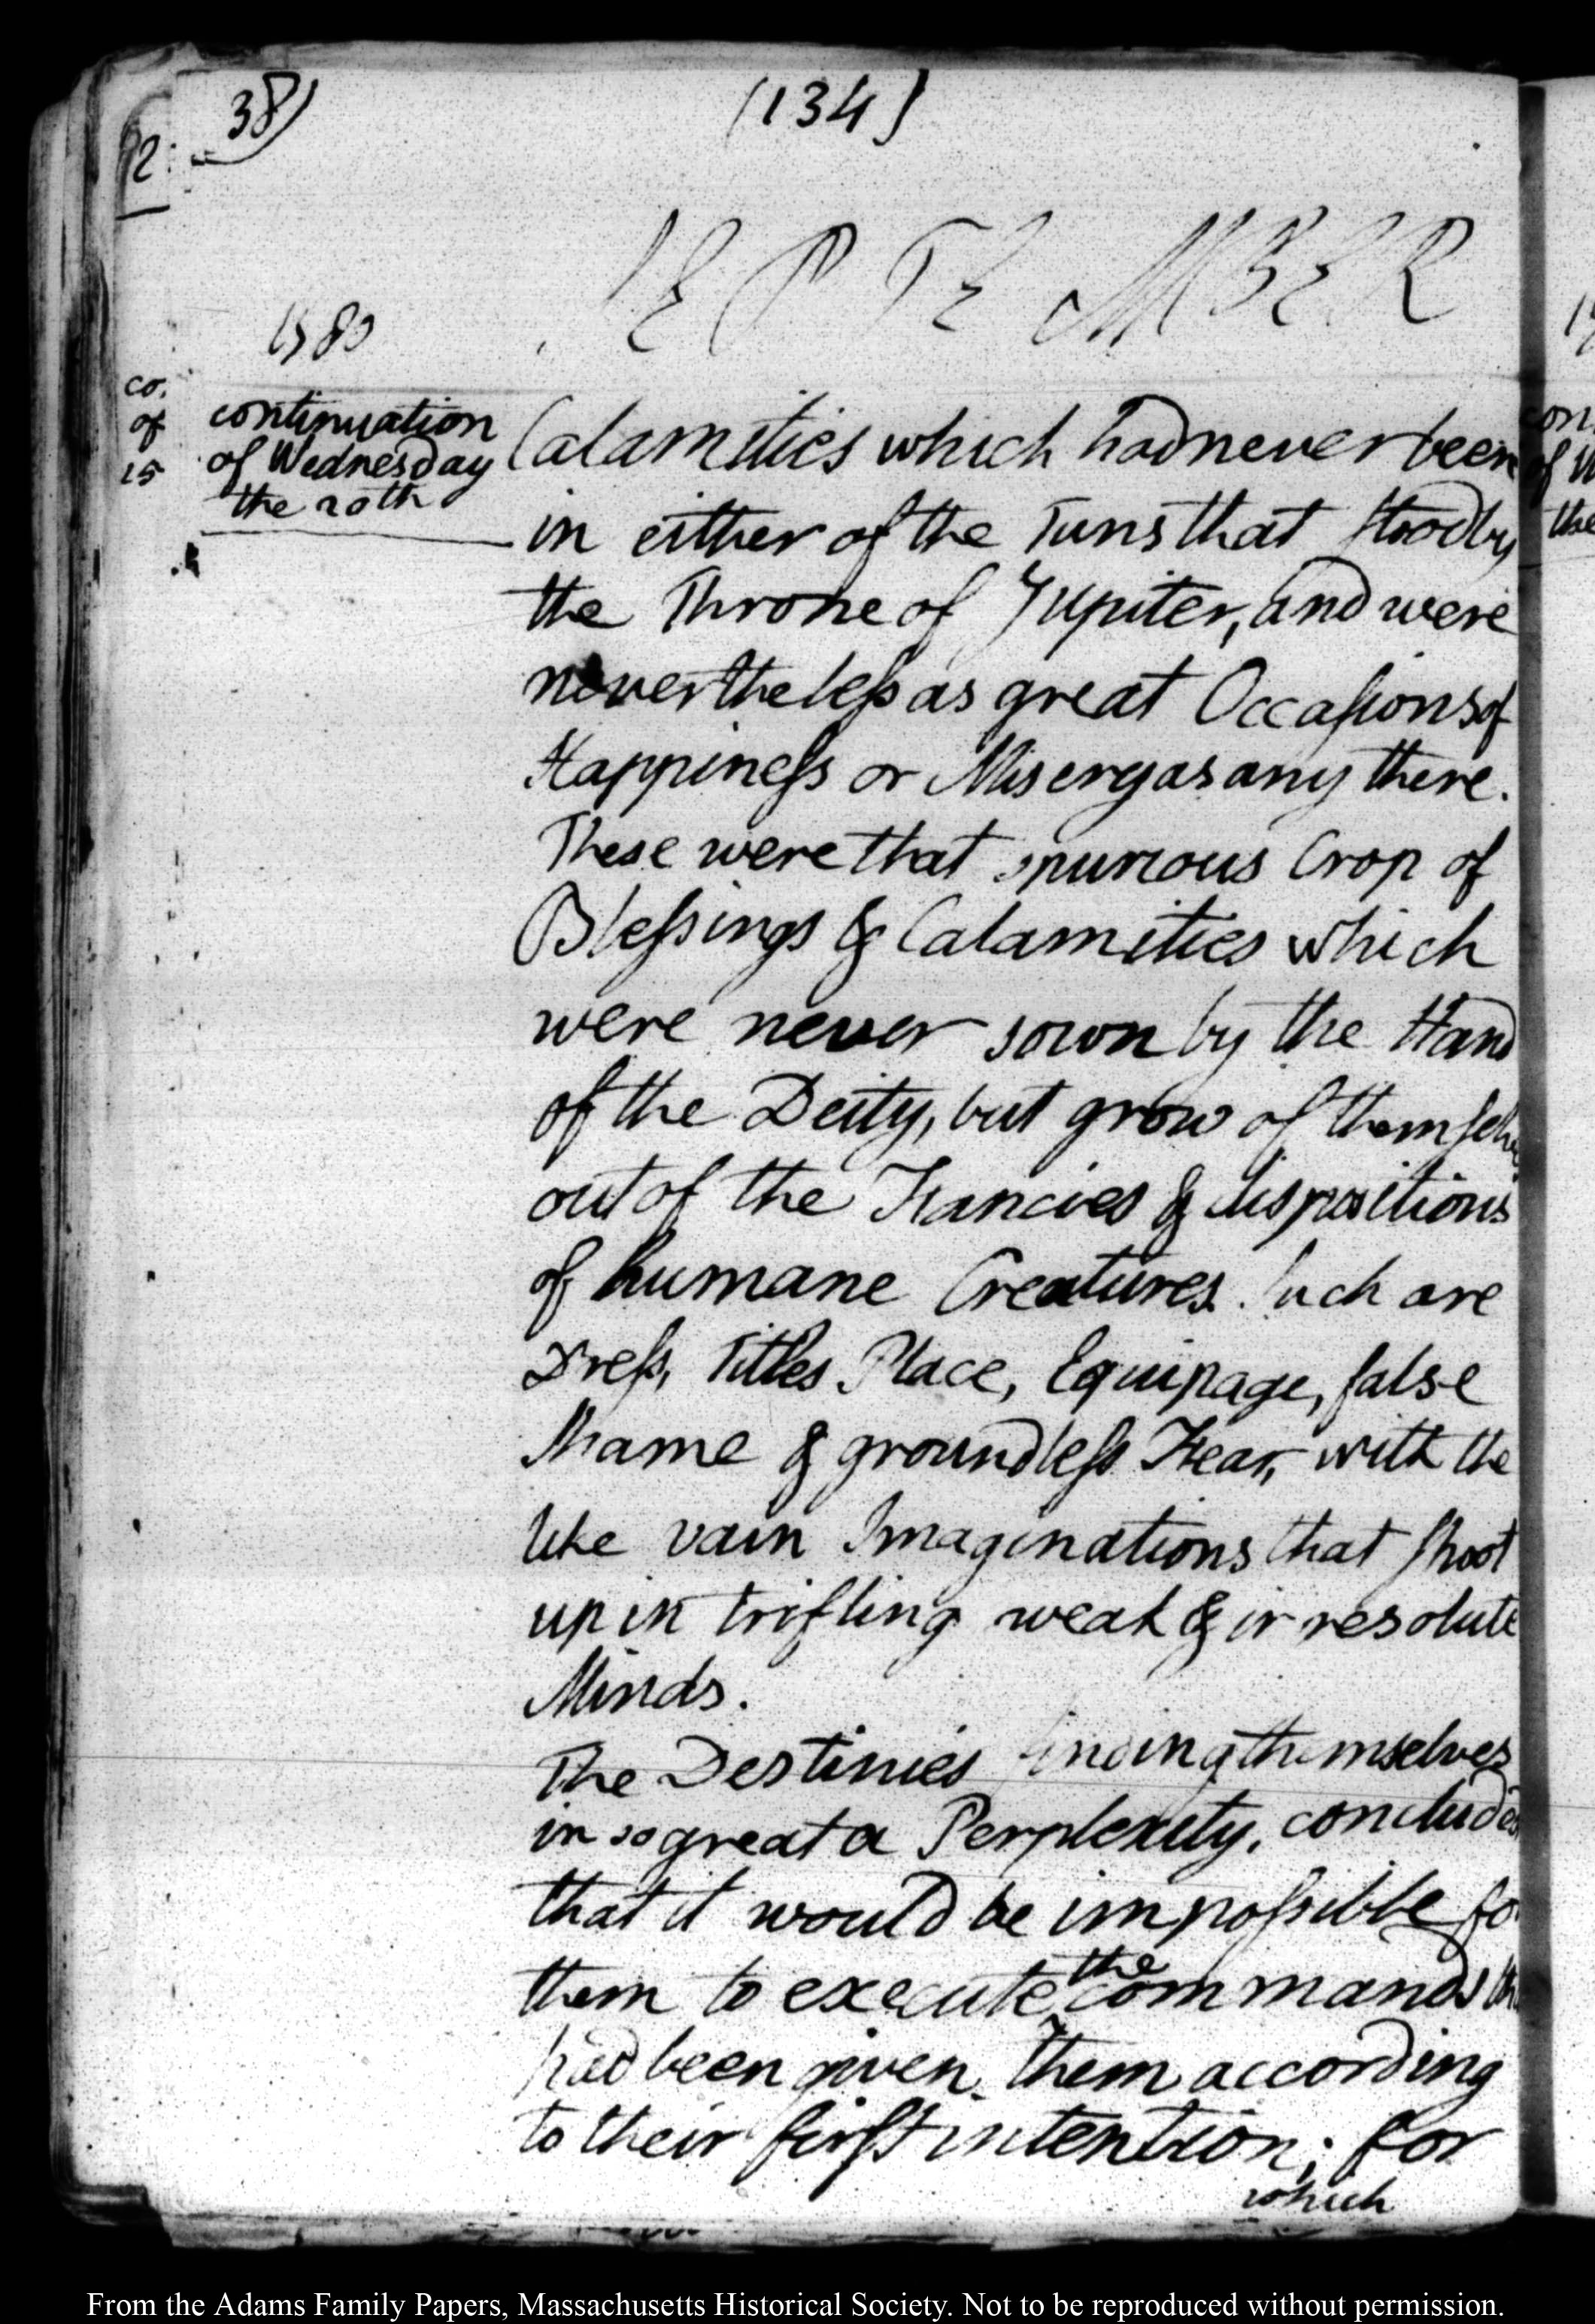 38)
(134)
SEPTEMBER
1780
co.
of
15
continuation
of Wednesday
the 20th
Calamities which had never been
in either of the Tuns that stood by
the Throne of Jupiter, and were
nevertheless as great Occasions of
Happiness or Misery as any there.
These were that spurious Crop of
Blessings & Calamities which
were never sown by the Hand
of the Deity, but grow of themselves
out of the Fancies & dispositions
of humane Creatures. Such are
Dress, Titles Place, Equipage, false
Shame & groundless Fear, with the
like vain Imaginations that shoot
up in trifling weak & irresolute
Minds.
The Destinies finding themselves
in so great a Perplexity, concluded
that it would be impossible for
them to execute the commands
had been given them according
to their first intention; for
which
From the Adams Family Papers, Massachusetts Historical Society. Not to be reproduced without permission.